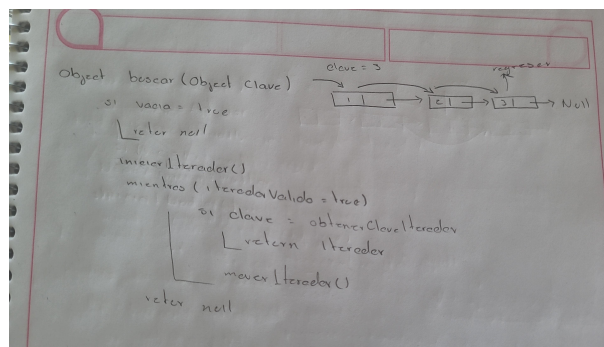 clave = 3
regresar
Object buscar (Object clave)
1 2 3 Null
si vacia = True
retur null
iniciarIterador()
mientras (iteradorValido = true)
si clave = obtenerClaveIterador
return Iterador
moverIterador()
retur null